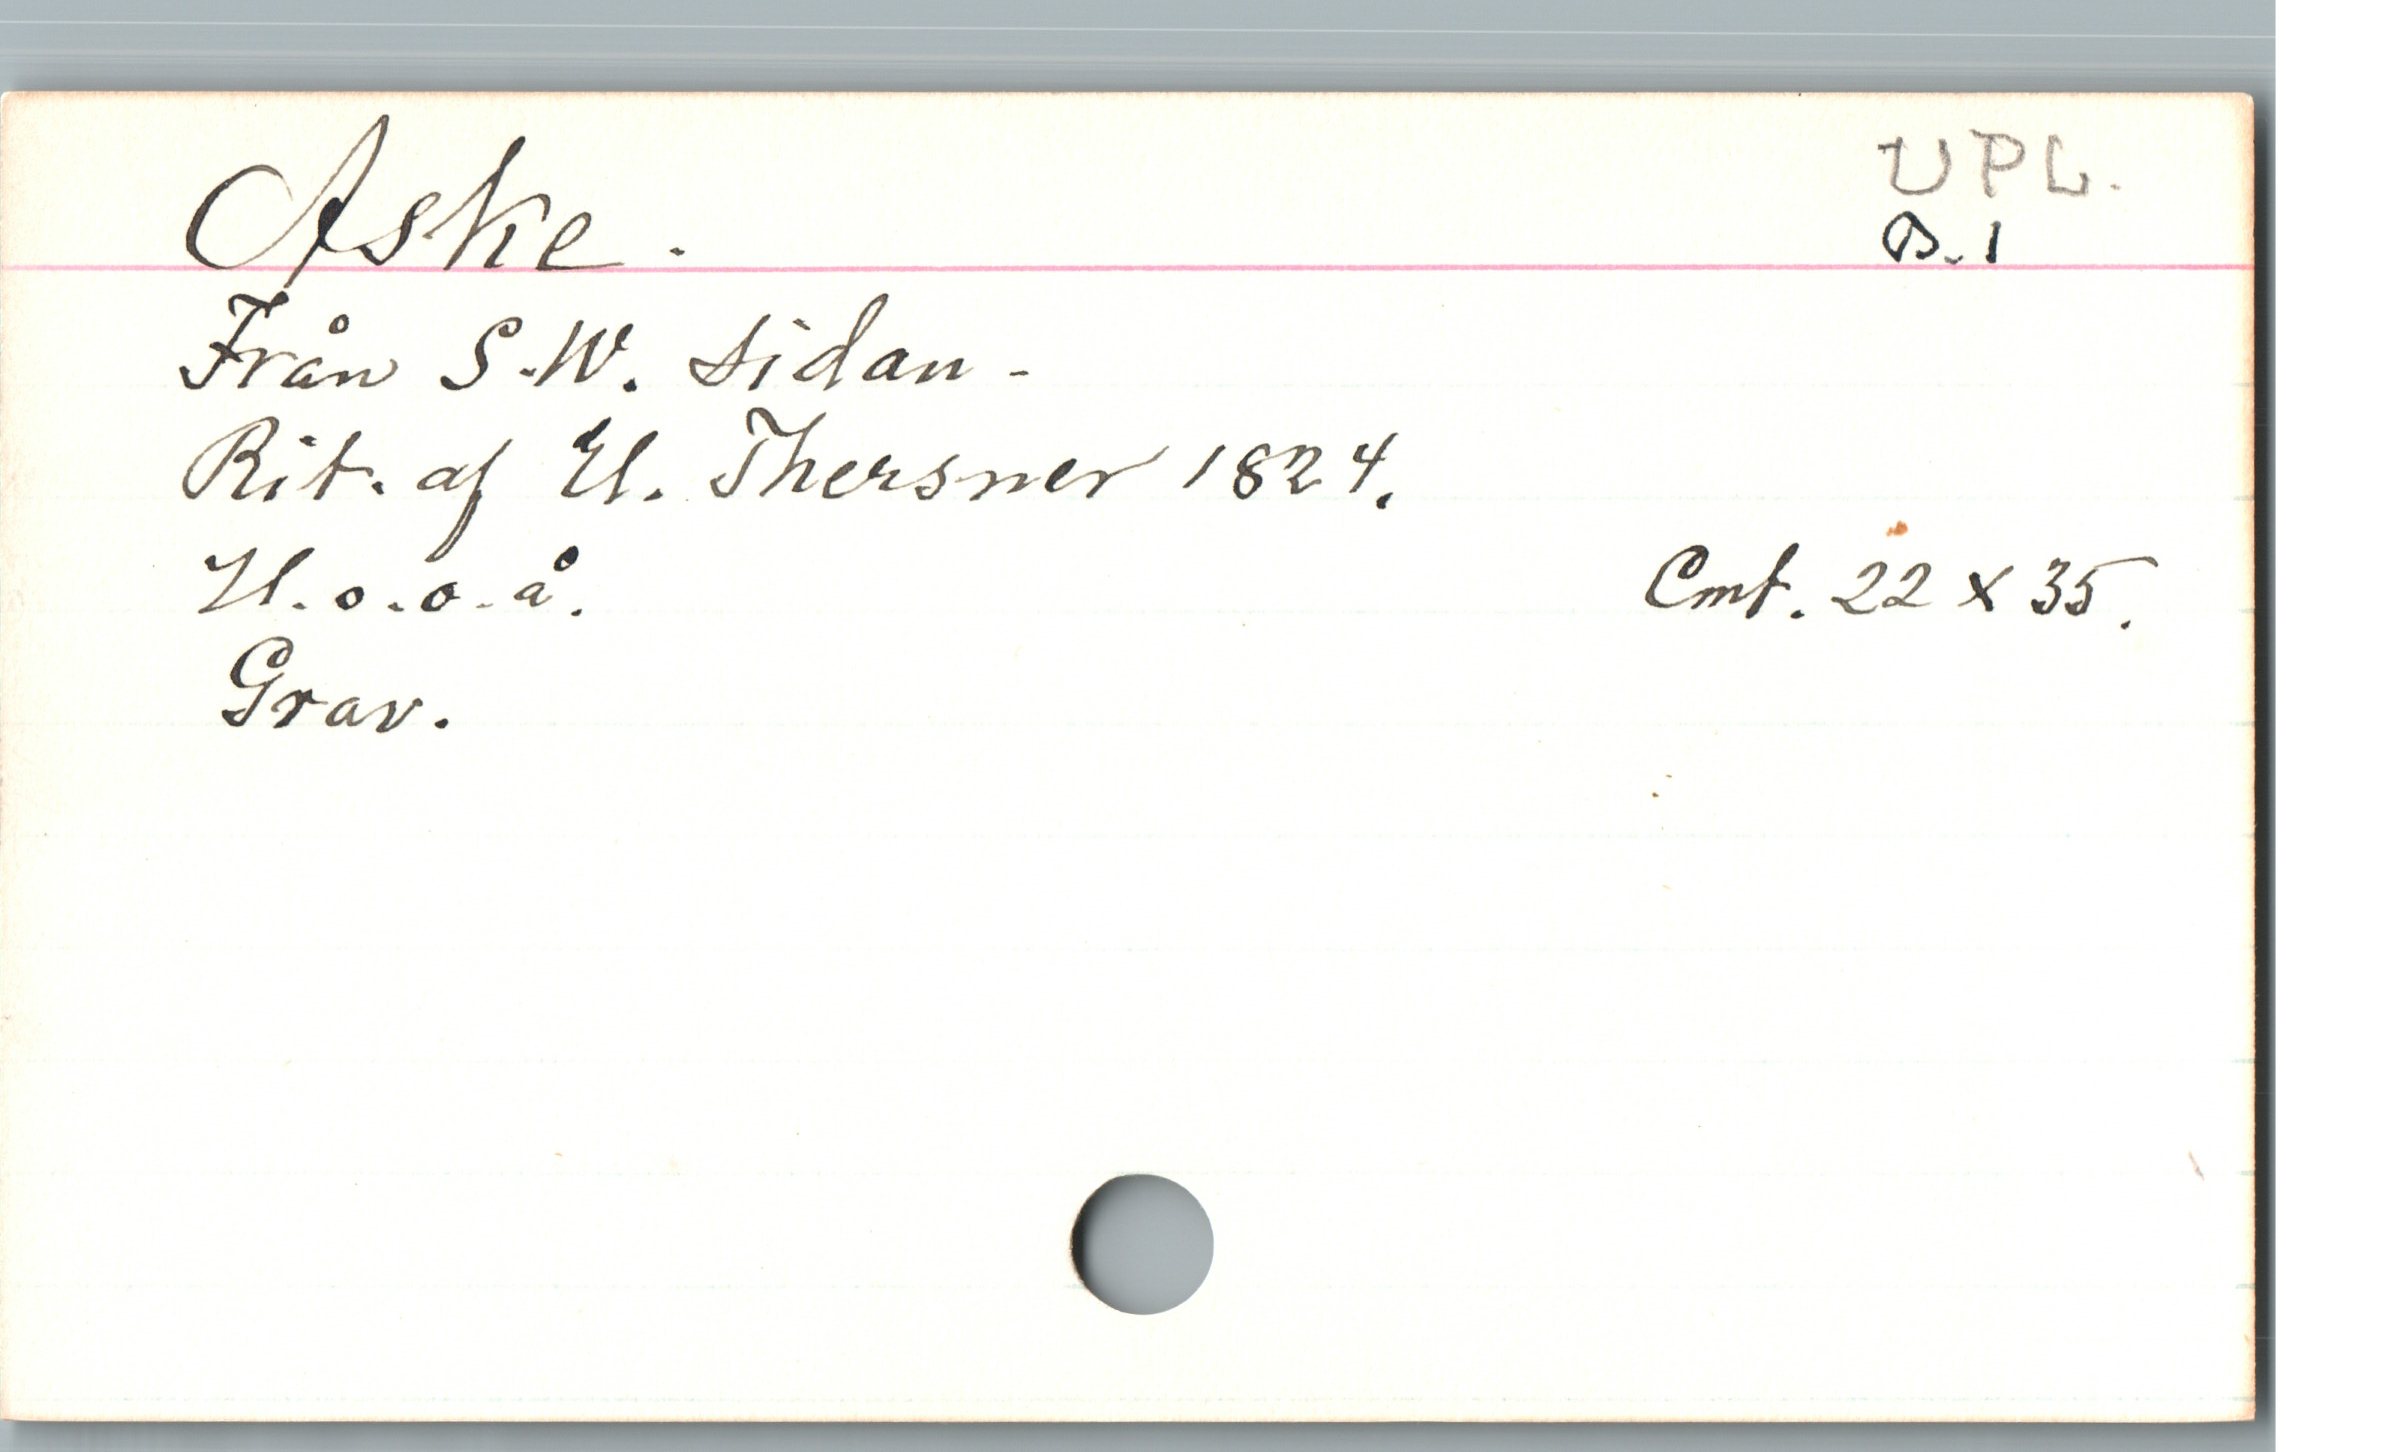 Aske.
UPL.
B. 1
Från S.W. sidan -
Rit. af Ul. Thersner 1824.
U. o. o. å.
Cmt. 22 x 35.
Grav.